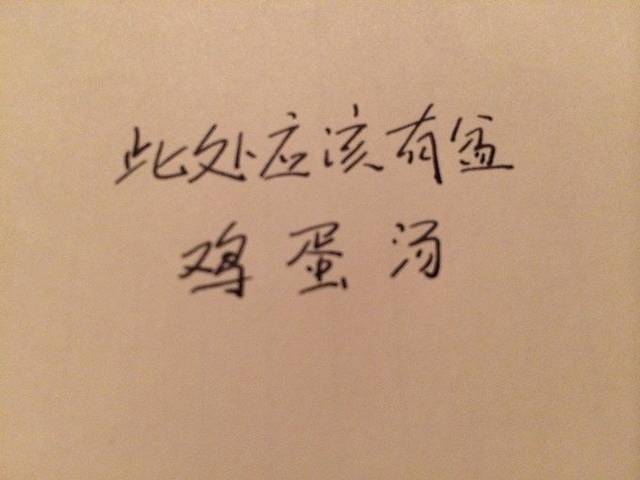 此处应该有盆
鸡蛋汤